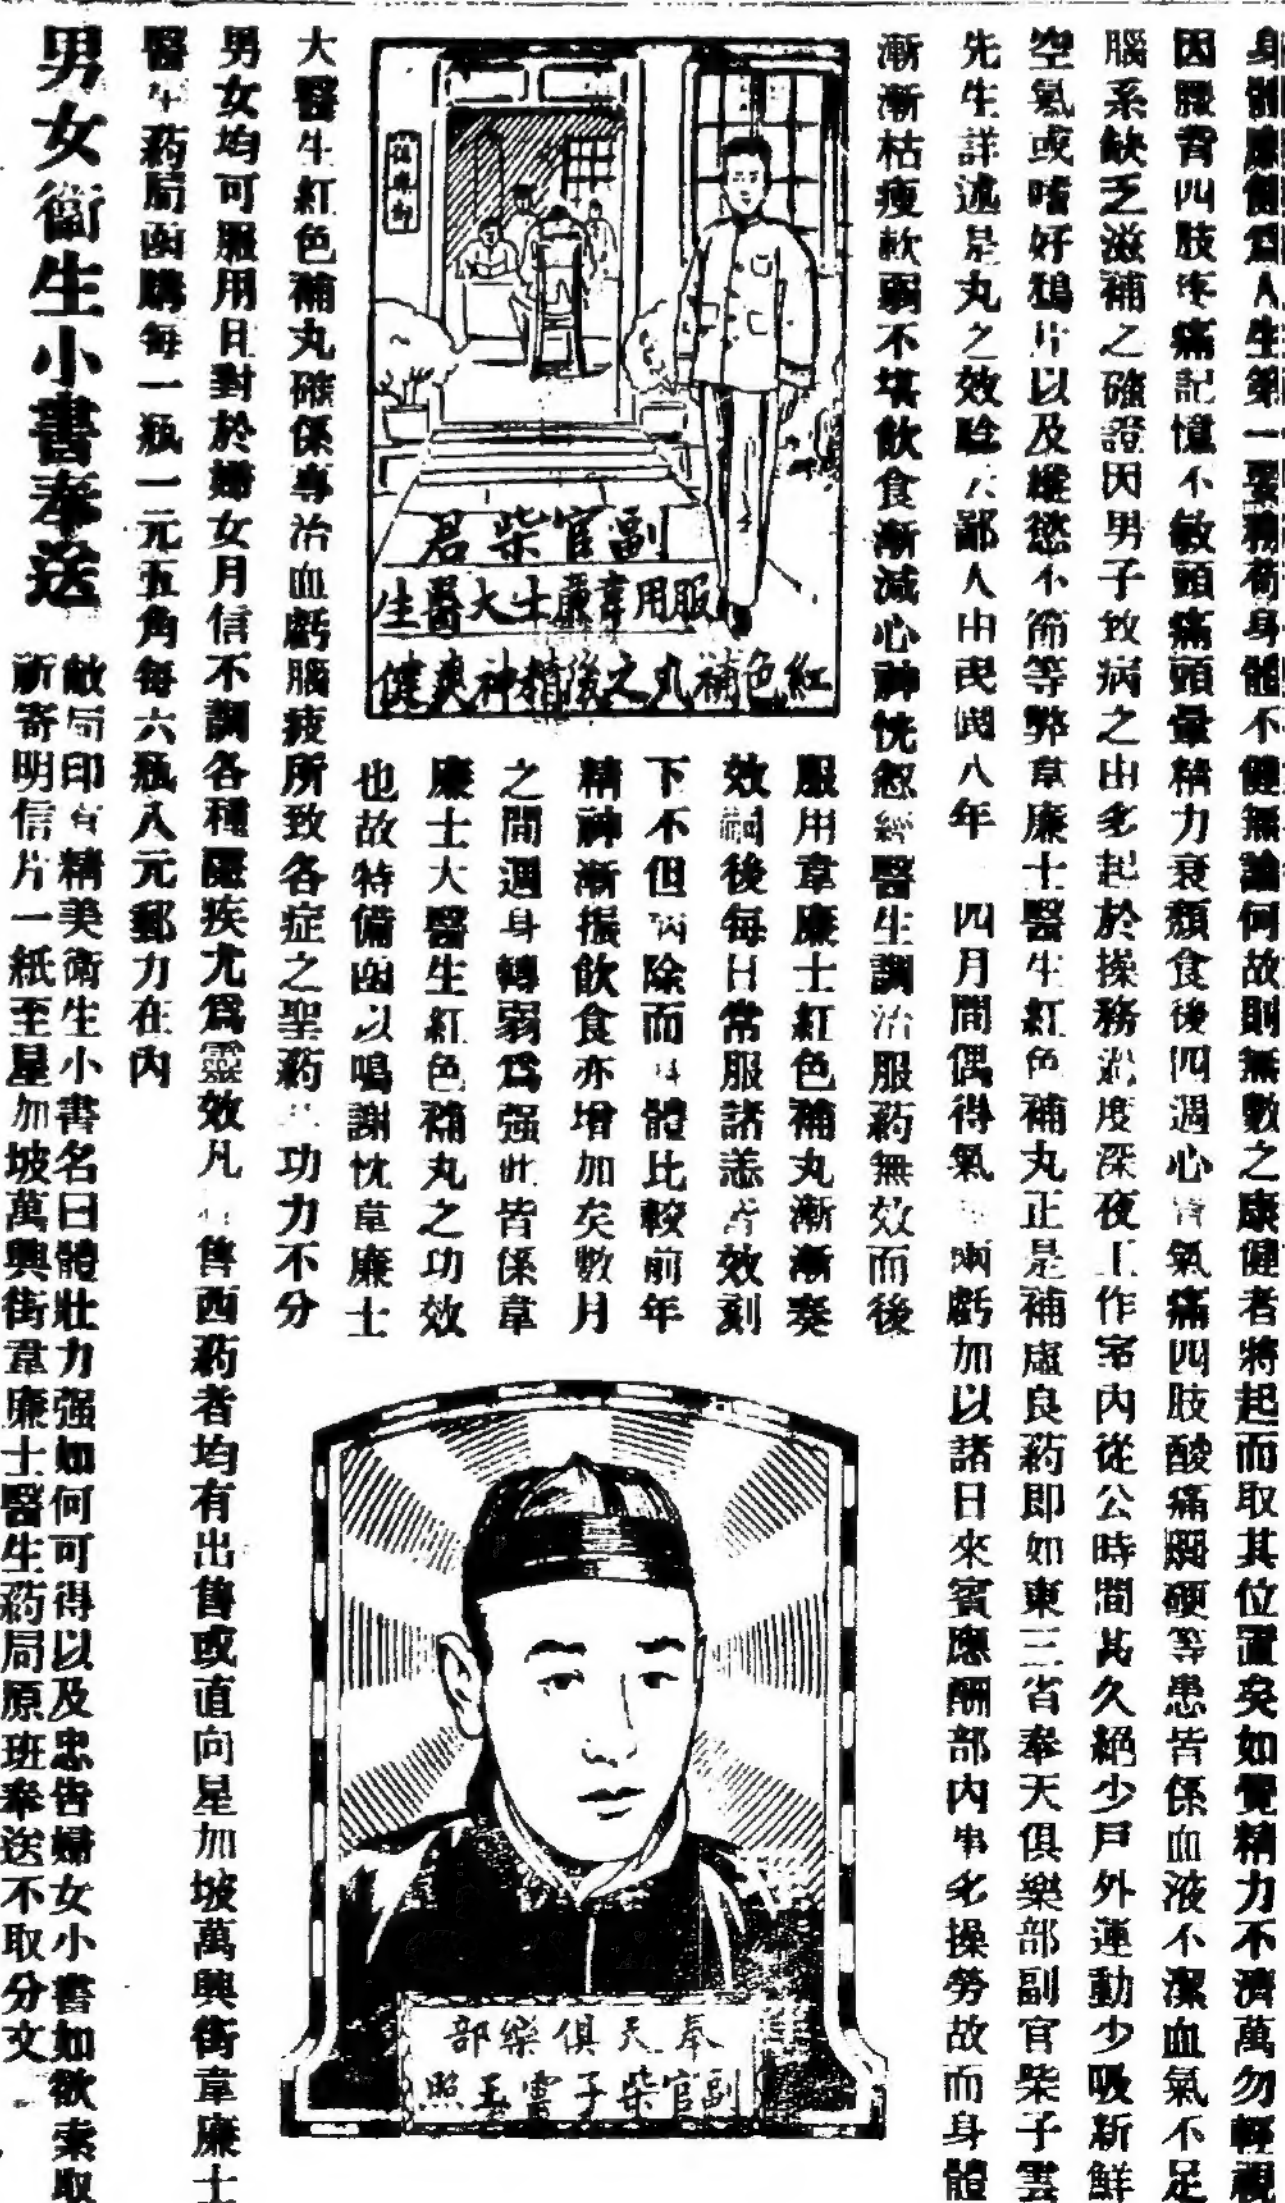 身制康健為人生第一要務荷身體不健無論何故則無數之康健者將起而取其位置矣如覺精力不濟萬勿輕視
因腰背四肢疼痛記憶不敏頭痛頭暈精力衰頹食後四週心胃氣痛四肢酸痛腦硬等患皆係血液不潔血氣不足
腦系缺乏滋補之確證因男子致病之由多起於操務過度深夜工作室內從公時間甚久絕少戶外運動少吸新鮮
空氣或嗜好鴉片以及縱慾不節等弊韋廉士醫生紅色補丸正是補虛良葯即如東三省奉天俱樂部副官柴子雲
先生詳述是丸之效驗云鄙人由民國八年四月間偶得氣兩虧加以諸日來賓應酬部內事多操勞故而身體
漸漸枯瘦軟弱不堪飲食漸減心神恍忽經醫生調治服葯無效而後
服用韋廉士紅色補丸漸漸奏
效嗣後每日常服諸恙皆效刻
下不但病除而身體比較前年
精神漸振飲食亦增加矣數月
之間週身轉弱為强此皆係韋
廉士大醫生紅色補丸之功效
也故特備函以鳴謝忱韋廉士
大醫生紅色補丸確係專治血虧腦疲所致各症之聖葯功力不分
男女均可服用且對於婦女月信不調各種隱疾尤為靈效凡售西葯者均有出售或直向星加坡萬興街韋廉士
醫生葯局函購每一瓶一元五角每六瓶八元郵力在內
男女衞生小書奉送
敝局印有精美衛生小書名曰體壯力强如何可得以及忠告婦女小書如欲索取
祈寄明信片一紙至星加坡萬興街韋廉士醫生葯局原班奉送不取分文
副官柴君
服用韋廉士大醫生
紅色補丸之後精神爽健
奉天俱樂部
副官柴子雲玉照